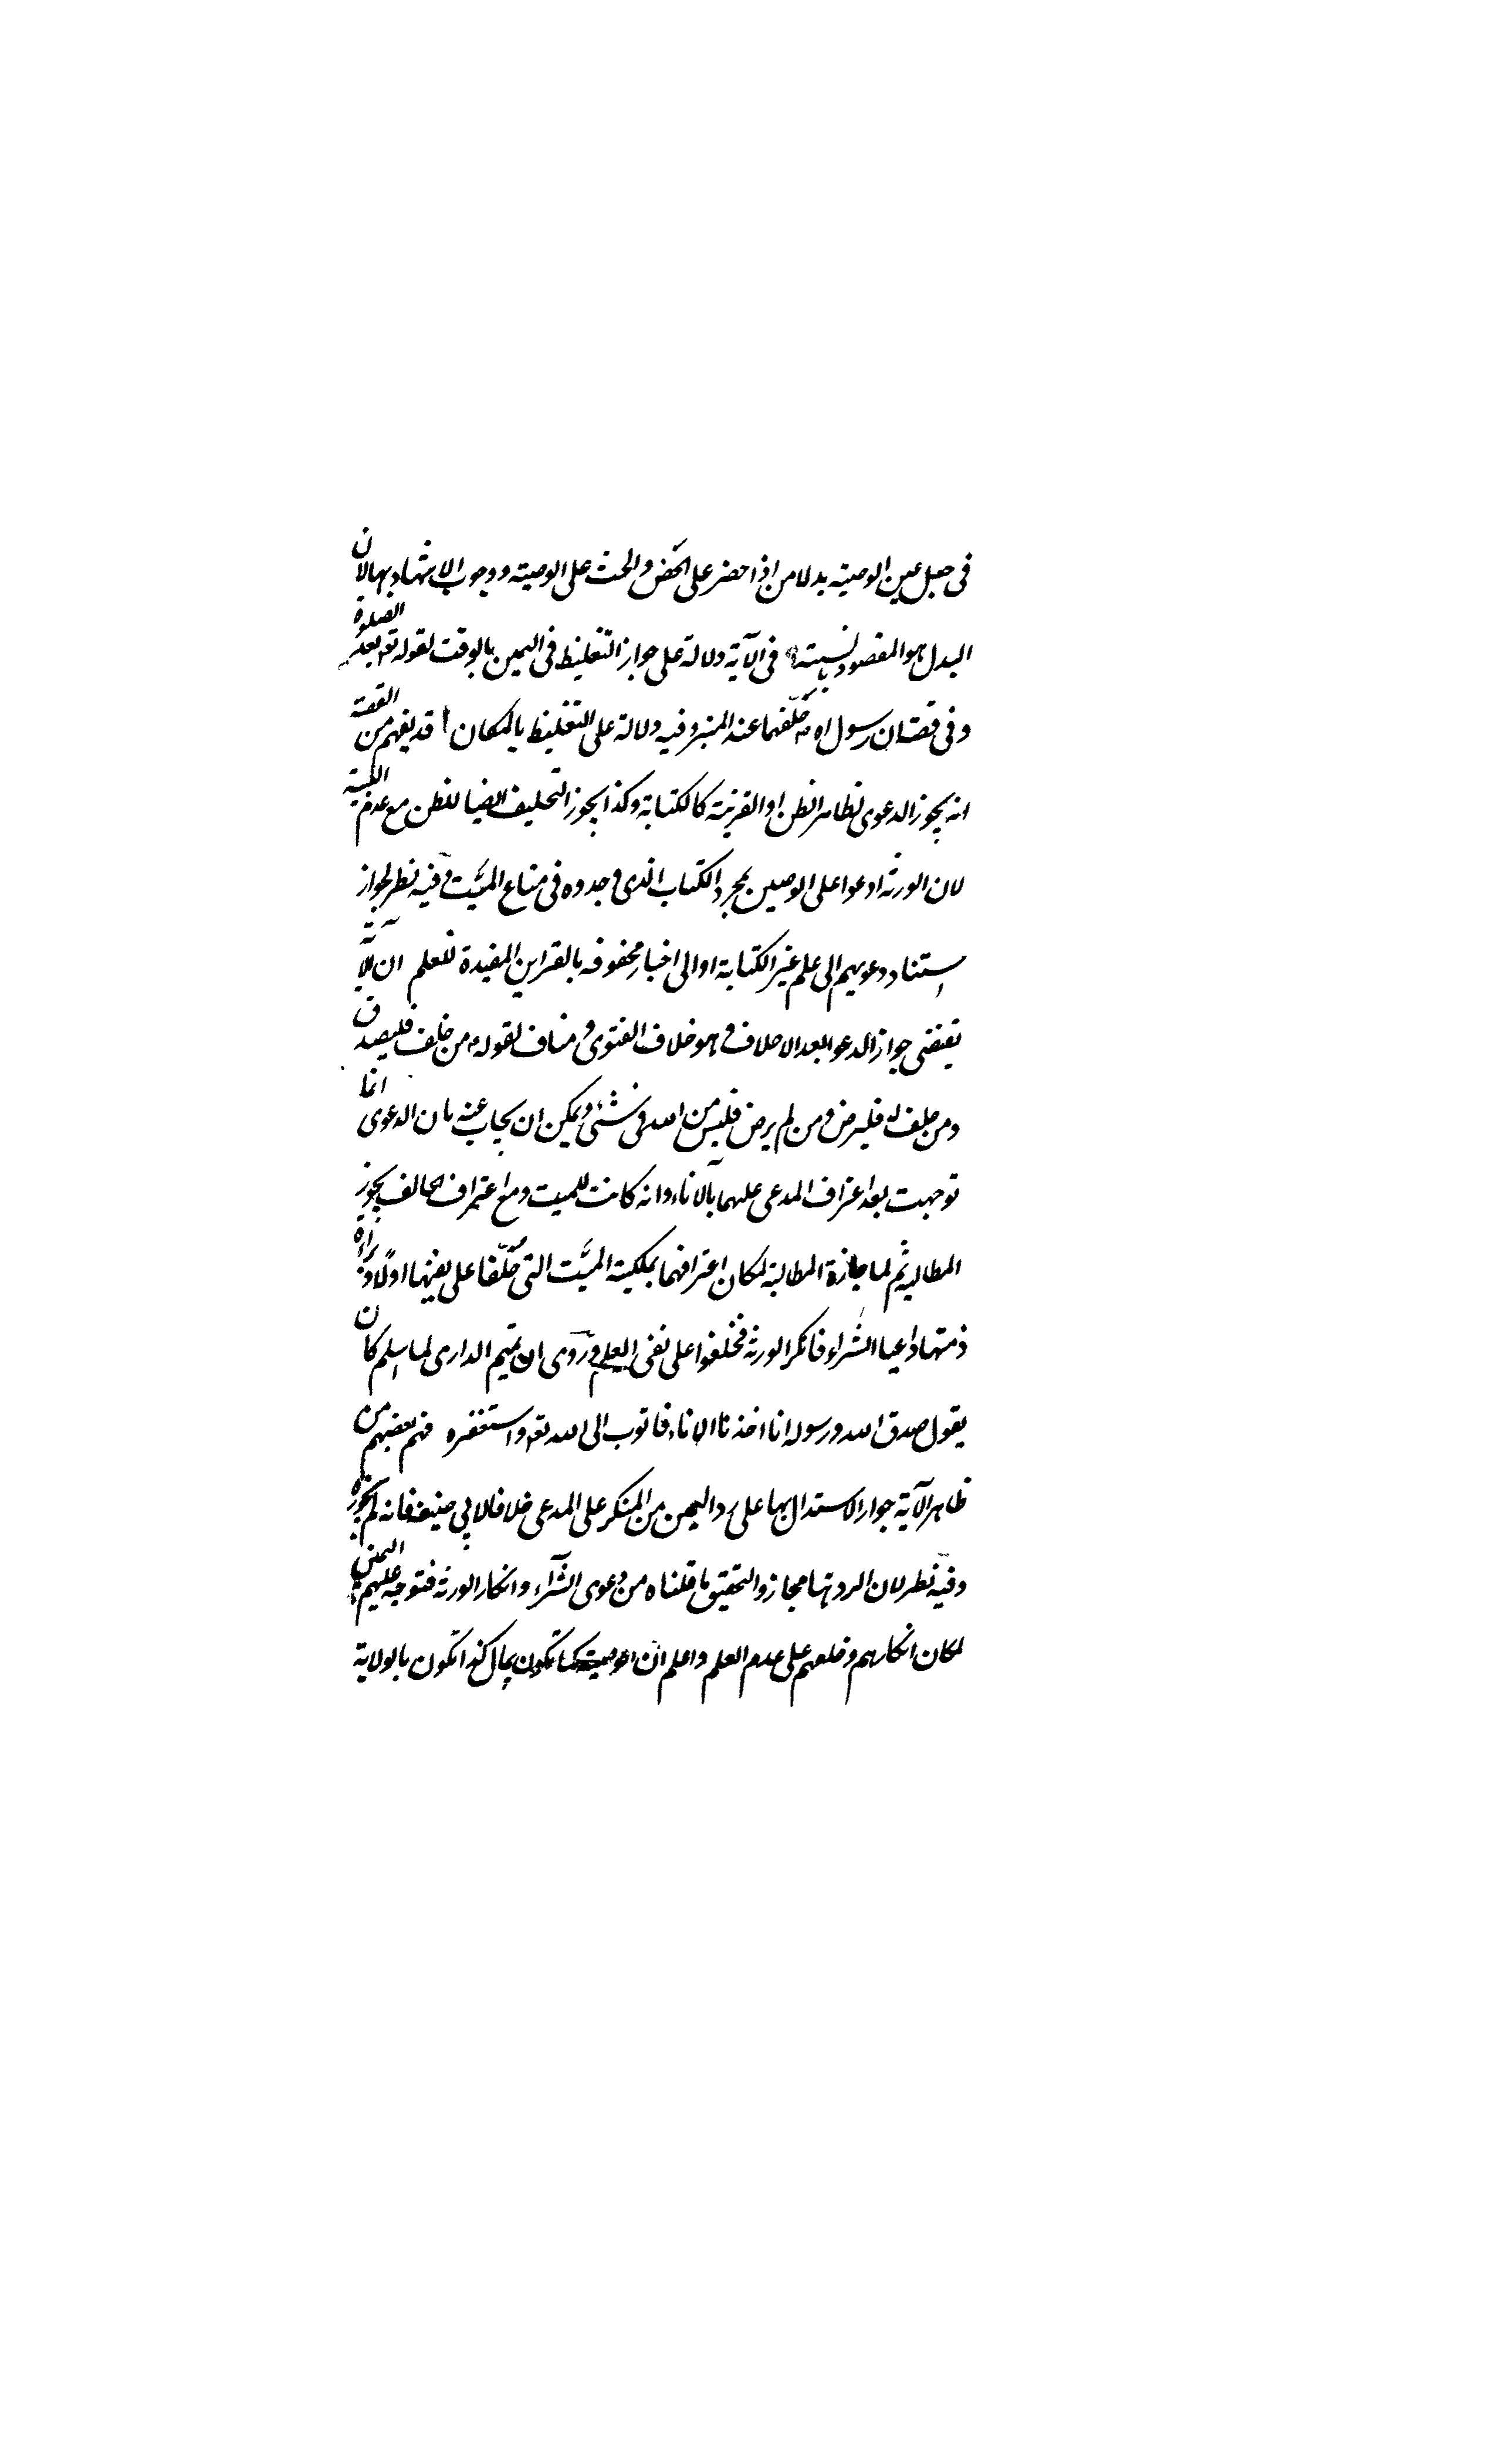 فى جعل عين الوصية بدلا من اذا حضر على الحض والحث على الوصية ووجوب الاشهاد بها لان
البدل هو المقصود بالنسبة فى الآية دلالة على جواز التغليظ فى اليمين بالوقت لقوله تع بعد الصلوة
وفى قصة ان رسول اله ص حلّفهما عند المنبر وفيه دلالة على التغليظ بالمكان قد يفهم من القصة
انه يجوز الدعوى بظاهر الظن او القرينة كالكتابة وكذا يجوز التحليف ايضا للظن مع عدم البينة
لان الورثة ادعوا على الوصيين بمجرد الكتاب الذى وجدوه فى متاع الميّت وفيه نظر لجواز
استناد دعويهم الى علم غير الكتابة او الى اخبار محفوفه بالقراين المفيدة للعلم ان الآية
تقتضى جواز الدعوى بعد الاحلاف وهو خلاف الفتوى ومناف لقوله ص من حلف فليصدق
ومن حلف له فليرض ومن لم يرض فليس من الله فى شئ ويمكن ان يجاب عنه بان الدعوى انما
توجهت بعد اعتراف المدعى عليهما بالاناء وانه كانت للميت ومع اعتراف الحالف يجوز
المطالبه ثم لما جازة المطالبة لمكان اعترافهما بملكية الميّت التى حلّفا على نفيها اولًا وبراءة
ذمتهما وادعيا الشراء فانكر الورثة فحلفوا على نفى العلم وروى ان تميم الدارى لما اسلم كان
يقول صدق الله ورسوله انا اخذنا الاناء فاتوب الى الله تع واستغفره فهم بعضهم من
ظاهر الآية جواز الاستدلال بها على رد اليمين من المنكر على المدعى خلافا لابى حنيفه فانه لم يجوزه
وفيه نظر لان الرد هنا مجاز والتحقيق ما قلناه من دعوى الشرآء وانكار الورثة فتوجه عليهم اليمين
لمكان انكارهم وحلفهم على عدم العلم واعلم ان الوصية كما تكون بمال كذا تكون بالولاية